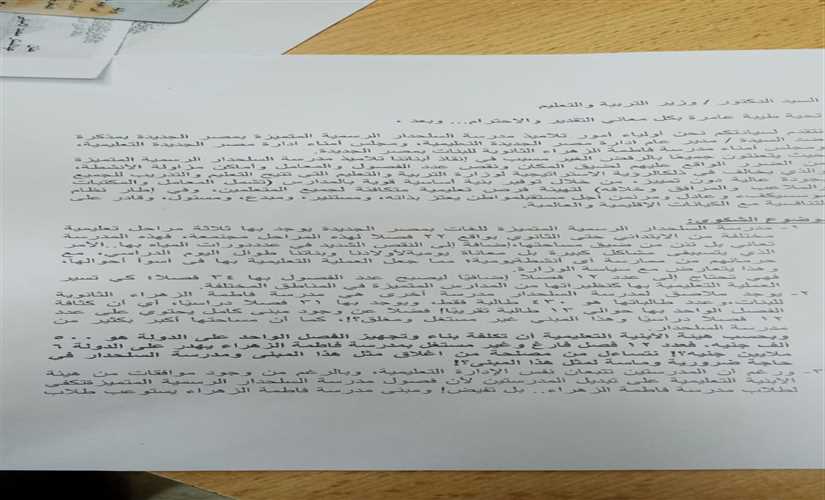 السيد الدكتور / وزير التربية والتعليم
تحية طيبة عامرة بكل معاني التقدير والاحترام... وبعد ،
نتقدم لسيادتكم نحن أولياء أمور تلاميذ مدرسة السلحدار الرسمية المتميزة بمصر الجديدة بمذكرة
ضد السيدة / مدير عام إدارة مصر الجديدة التعليمية، ومجلس أمناء إدارة مصر الجديدة التعليمية،
ومجلس أمناء مدرسة الزهراء الثانوية للبنات بمصر الجديدة.
حيث يتحتون جميعا بالرفض الغير مسبب في إنقاذ أبنائنا تلاميذ مدرسة السلحدار الرسمية المتميزة
من الضرر الواقع عليهم بضيق المكان ونقص عدد الفصول والمعامل وأماكن مزاولة الأنشطة،
الذي يخالف في ذلك الرؤية الاستراتيجية لوزارة التربية والتعليم التي تتيح التعليم والتدريب للجميع
بجودة عالية دون تمييز، من خلال توفير بنية أساسية قوية بالمدارس (تشمل المعامل والمكتبات
والملاعب والمرافق وخلافه) لتهيئة فرص تعليمية متكافئة لجميع المتعلمين، وفي إطار نظام
وعادل ومرن من أجل مستقبل مواطن يعتز بذاته، ومستنير، ومبدع، ومسئول، وقادر على
التنافسية مع الكيانات الإقليمية والعالمية.
موضوع الشكوى:
١- مدرسة السلحدار الرسمية المتميزة للغات بمصر الجديدة يوجد بها ثلاثة مراحل تعليمية
مختلفة من الابتدائي حتى الثانوي بواقع ٢٢ فصل لهذه المراحل مجتمعة، فهذه المدرسة
تعاني بل تئن من ضيق مساحتها، إضافة إلى النقص الشديد في عدد دورات المياه بها.. الأمر
الذي يتسبب في مشاكل كبيرة بل معاناة يومية لأولادنا وبناتنا طوال اليوم الدراسي، مع
حرمانهم من ممارسة أي أنشطة تربوية، مما يجعل العملية التعليمية بها في أسوأ أحوالها،
وهذا يتعارض مع سياسة الوزارة.
فهي تحتاج إلى عدد ١٢ فصلا إضافيا ليصبح عدد الفصول بها ٣٤ فصلا، كي تسير
العملية التعليمية بها كنظيراتها من المدارس المتميزة في المناطق المختلفة.
٢- يوجد ملاصق لمدرسة السلحدار مدرسة أخرى هي مدرسة فاطمة الزهراء الثانوية
للبنات، وعدد طالباتها هو ٤٣٠ طالبة فقط، ويوجد بها ٣١ فصلا دراسيا، أي أن كثافة
الفصل الواحد بها حوالي ١٣ طالبة تقريبا! فضلا عن وجود مبنى كامل يحتوي على عدد
١٢ فصلا دراسيا وهذا المبنى غير مستغل ومغلق؟!، كما أن مساحتها أكبر بكثير من
مدرسة السلحدار.
وبحسب هيئة الأبنية التعليمية أن تكلفة بناء وتجهيز الفصل الواحد على الدولة هو ٥٠٠
ألف جنيه، فعدد ١٢ فصل فارغ وغير مستغل بمدرسة فاطمة الزهراء يهدر على الدولة ٦
ملايين جنيه؟! نتساءل من مصلحة من إغلاق مثل هذا المبنى ومدرسة السلحدار في
حاجة ضرورية وماسة لمثل هذا المبنى؟!
٣- ورغم أن المدرستين تتبعان نفس الإدارة التعليمية، وبالرغم من وجود موافقات من هيئة
الأبنية التعليمية على تبديل المدرستين لأن فصول مدرسة السلحدار الرسمية المتميزة تكفي
لطلاب مدرسة فاطمة الزهراء.. بل تفيض! ومبنى مدرسة فاطمة الزهراء يستوعب طلاب